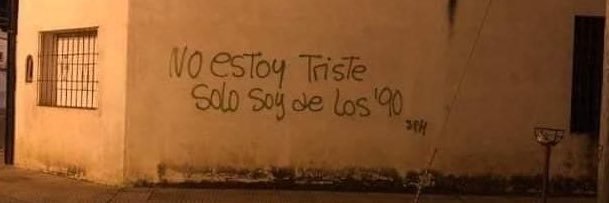 NO estoy Triste
Solo soy de Los '90
3PH